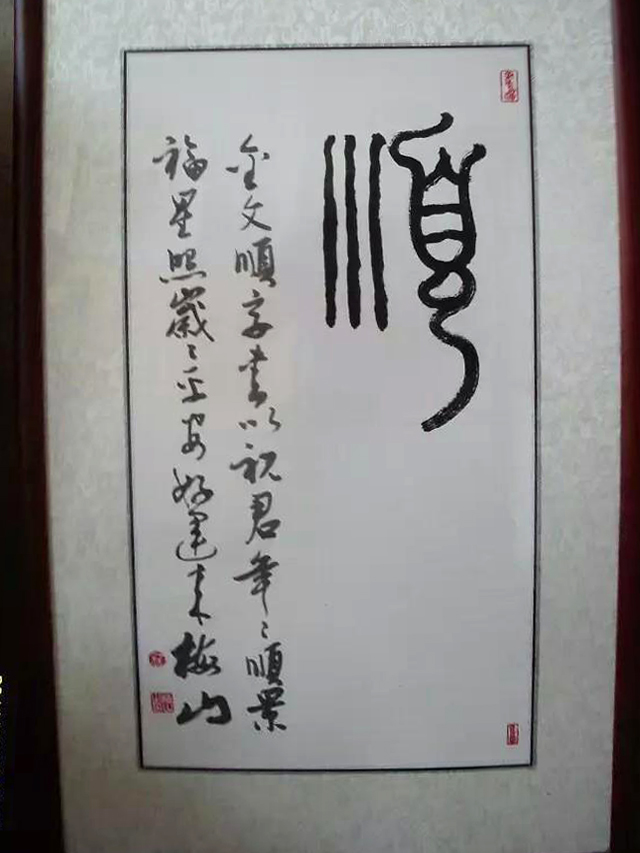 順
金文順字書以祝君年〻順景
福星照歲〻平安好運來梅山